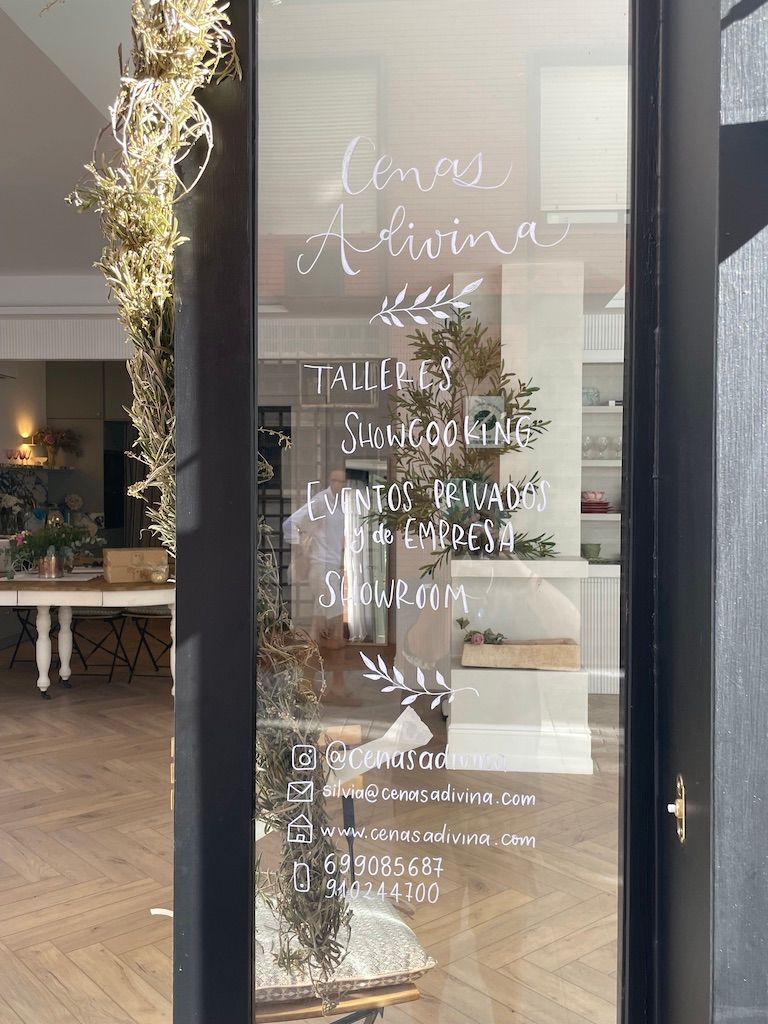 Cenas
Adivina
TALLERES
SHOWCOOKING
EVENTOS PRIVADOS
y de EMPRESA
SHOWROOM
@cenasadivina
silvia@cenasadivina.com
www.cenasadivina.com
699085687
910244700